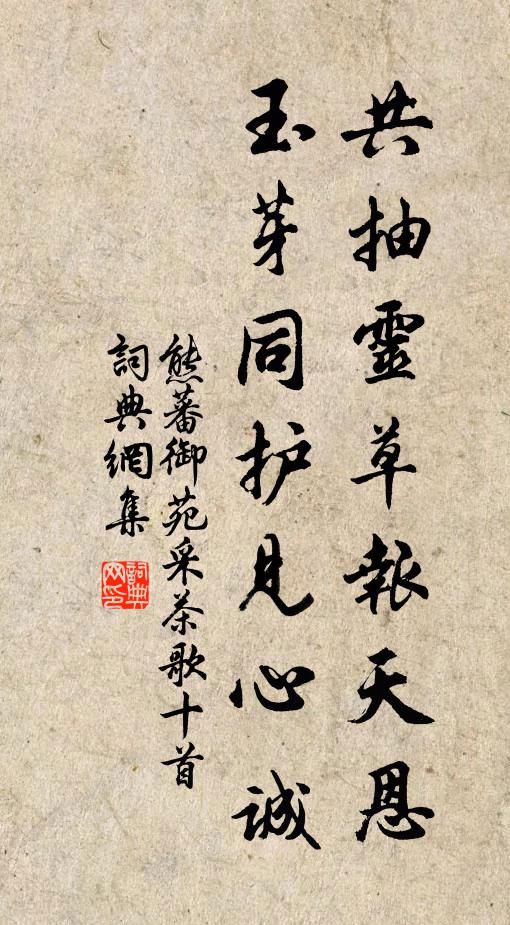 共抽靈草報天恩
玉芽同护見心誠
熊蕃御苑采茶歌十首
詞典網集
詞典網印